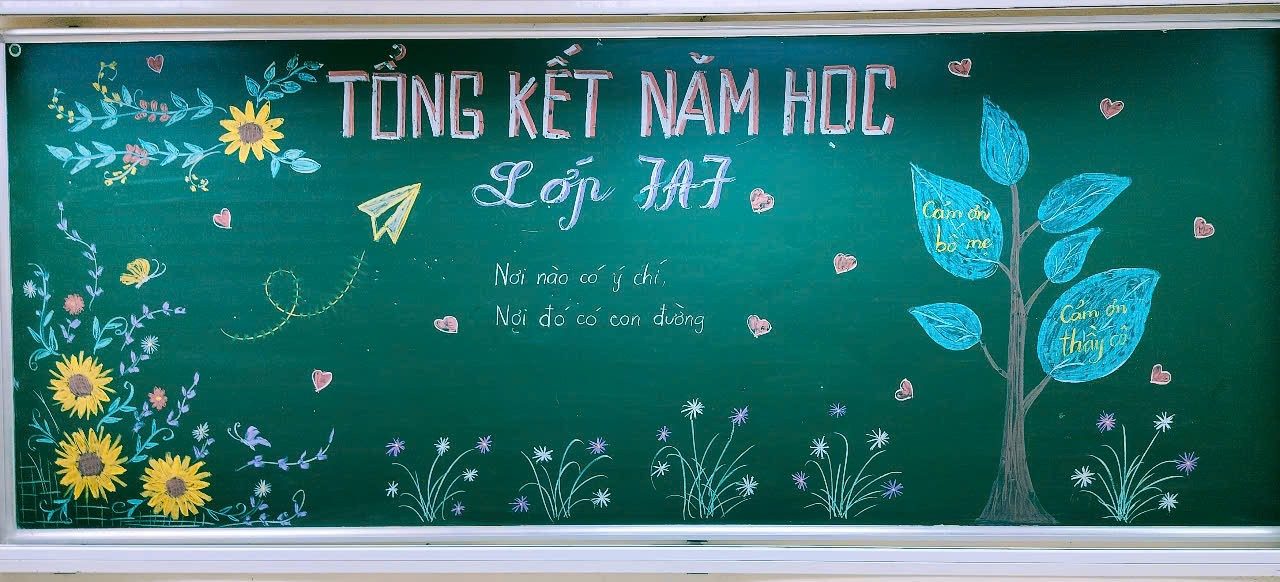 TỔNG KẾT NĂM HỌC
Lớp 7A7
Nơi nào có ý chí,
Nơi đó có con đường
Cảm ơn
bố mẹ
Cảm ơn
thầy cô